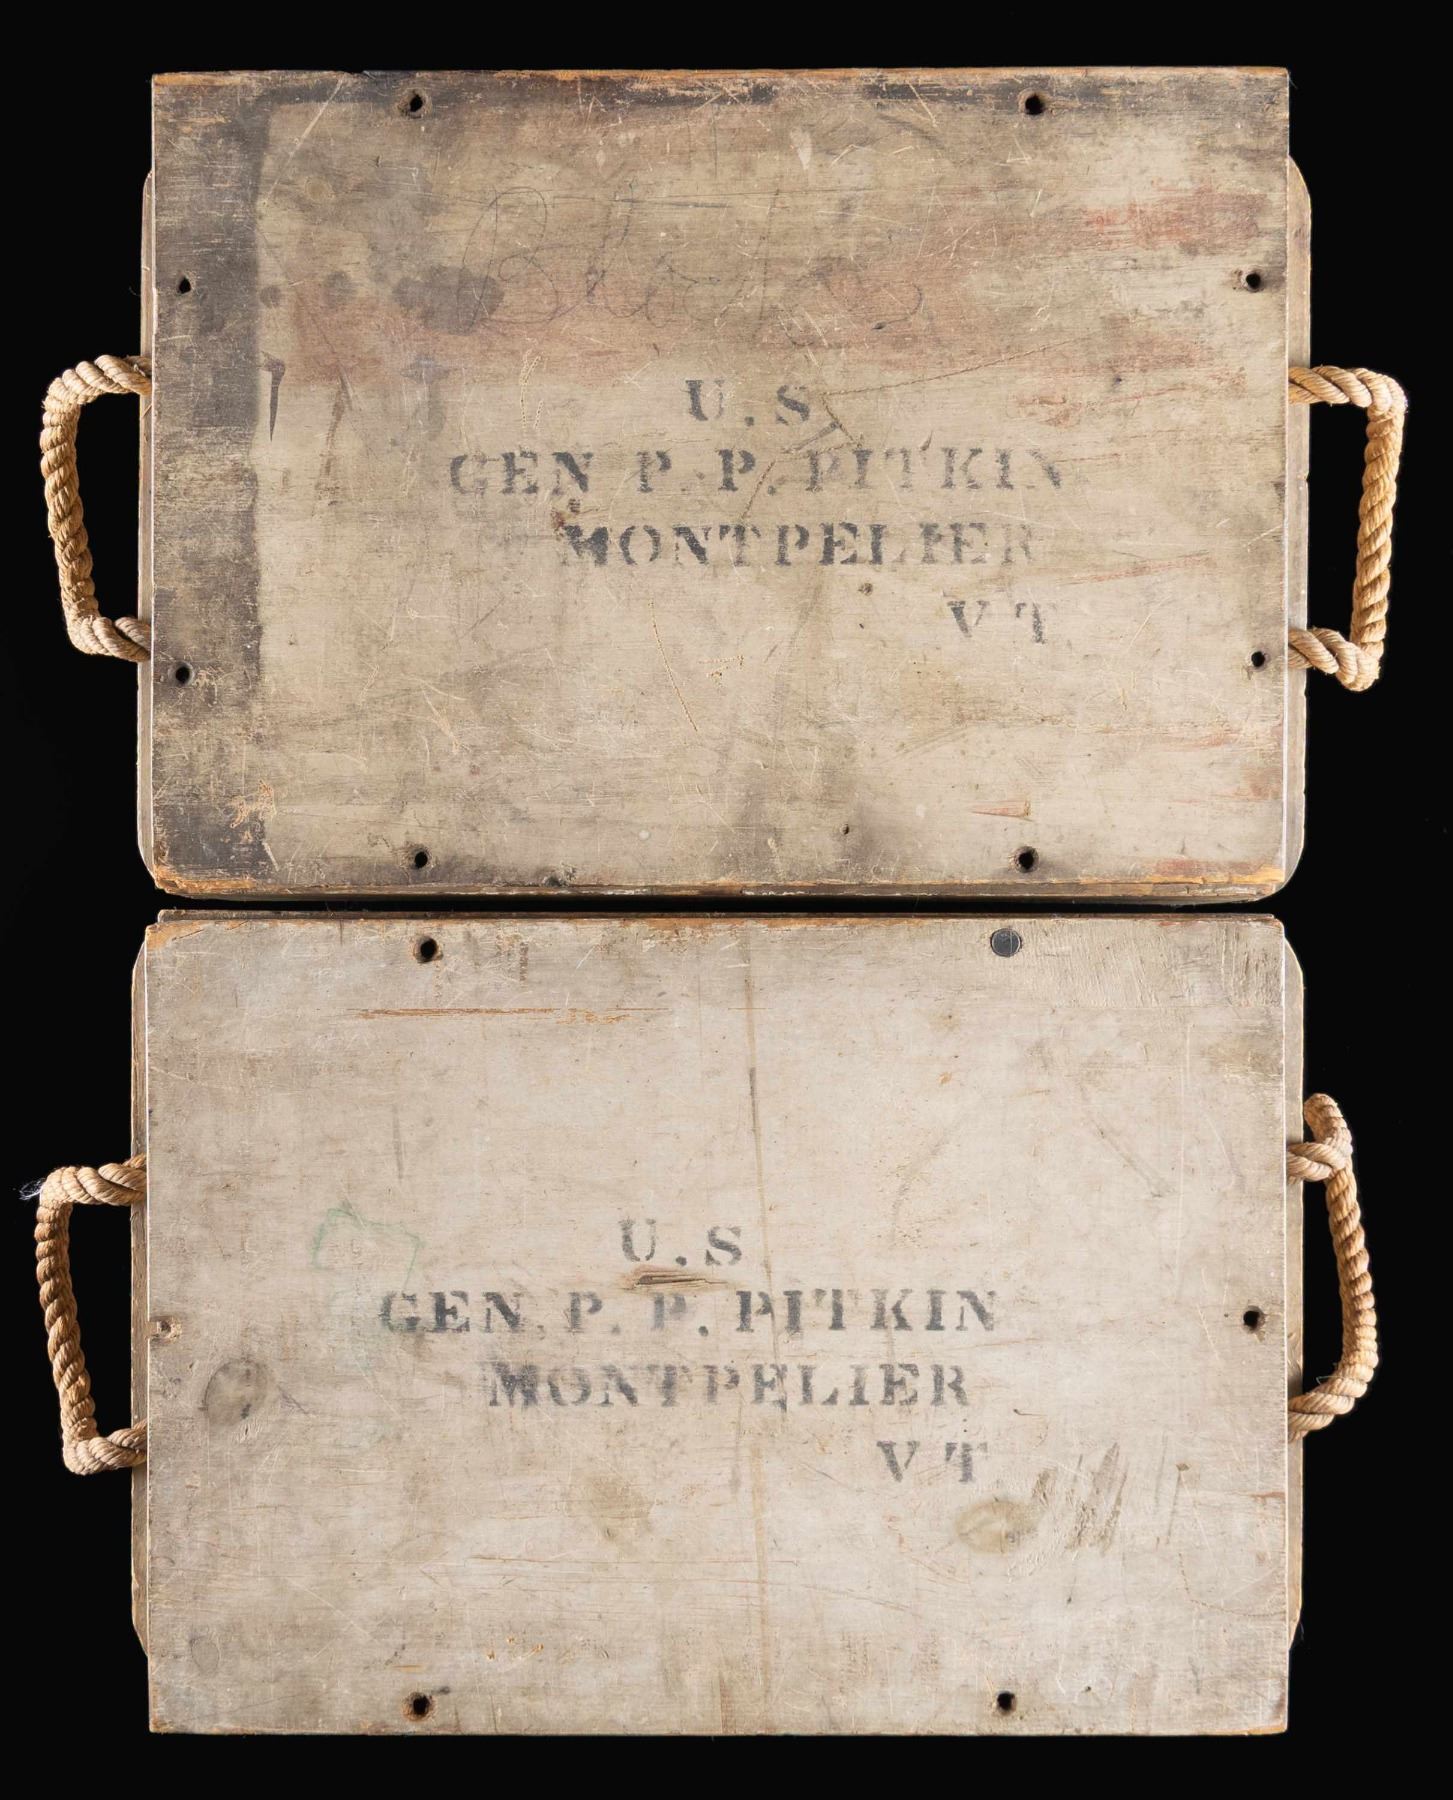 U.S
GEN P. P. PITKIN
MONTPELIER
VT
U.S
GEN. P. P. PITKIN
MONTPELIER
VT